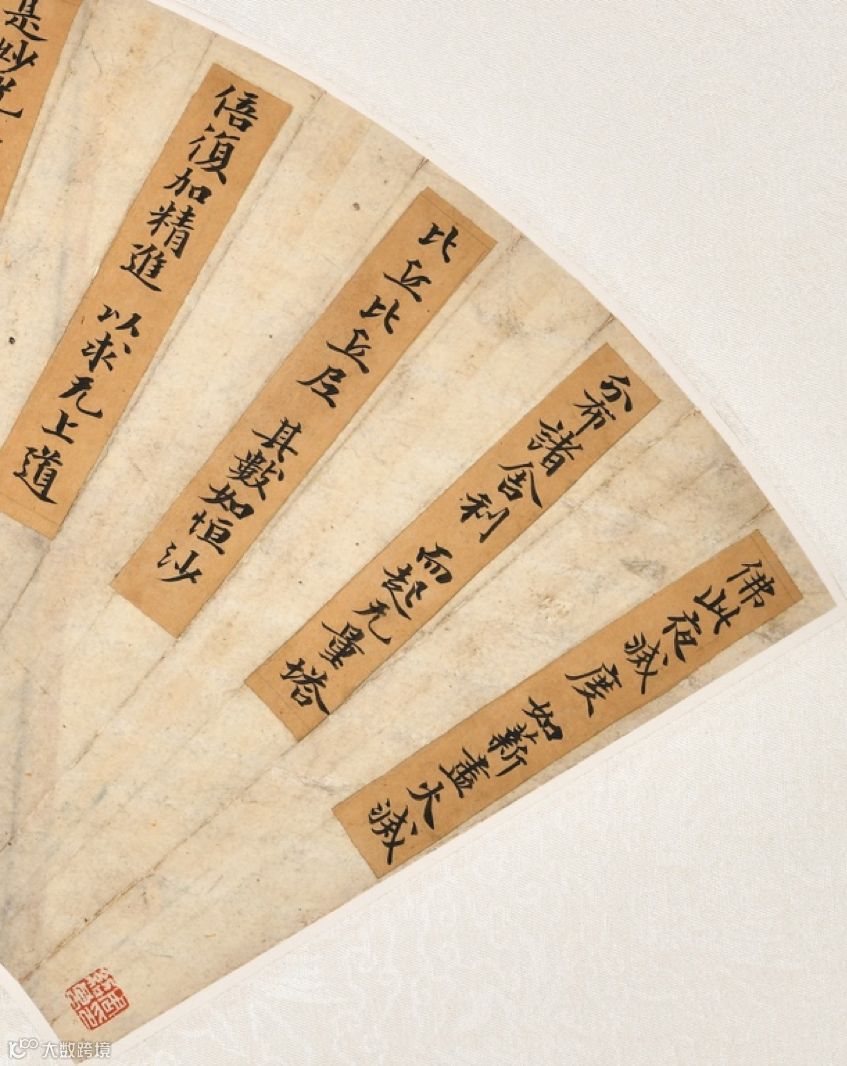 佛此夜滅度 如薪盡火滅
分布諸舍利 而起无量塔
比丘比丘尼 其數如恒沙
倍復加精進 以求无上道
是妙光
大数跨境